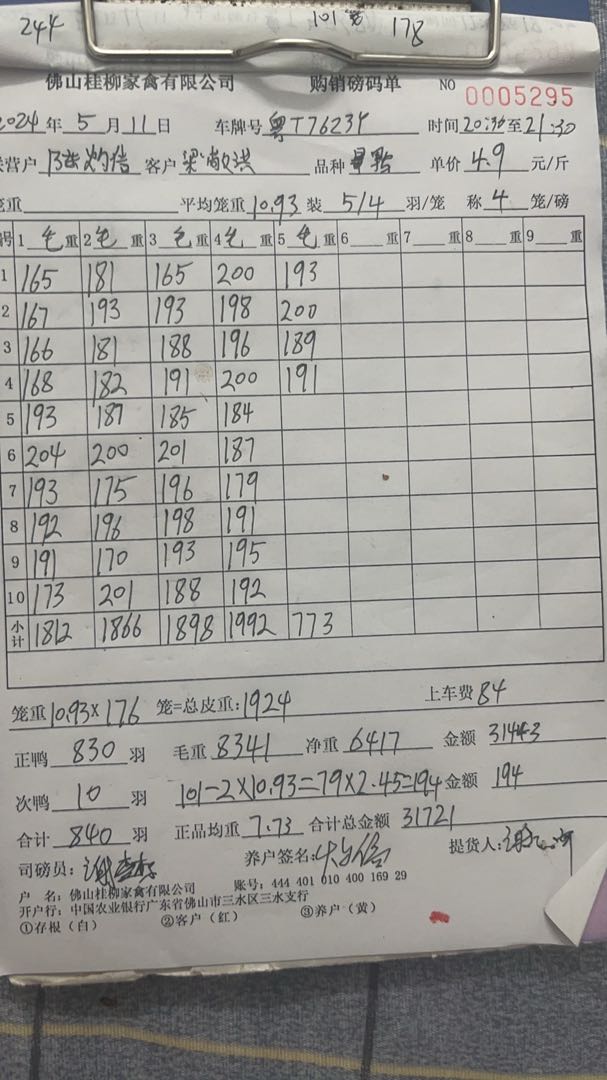 244 101 178
佛山桂柳家禽有限公司 购销磅码单 NO 0005295
2024年5月11日 车牌号 粤T7623Y 时间20:30至21:30
营户 客户 梁敞洪 品种 单价 4.9 元/斤
笼重 平均笼重 10.93 装 5/4 羽/笼 称 4 笼/磅
号 1 毛 重 2 毛 重 3 毛 重 4 毛 重 5 毛 重 6 重 7 重 8 重 9 重
1 165 181 165 200 193
2 167 193 193 198 200
3 166 181 188 196 189
4 168 182 191 200 191
5 193 187 185 184
6 204 200 201 187
7 193 175 196 179
8 192 196 198 191
9 191 170 193 195
10 173 201 188 192
小计 1812 1866 1898 1992 773
笼重 10.93 X 176 笼=总皮重: 1924 上车费 84
正鸭 830 羽 毛重 8341 净重 6417 金额 31443
次鸭 10 羽 101-2X10.93=79X2.45=194 金额 194
合计 840 羽 正品均重 7.73 合计总金额 31721
司磅员: 养户签名: 提货人:
户 名: 佛山桂柳家禽有限公司 账号: 444 401 010 400 169 29
开户行: 中国农业银行广东省佛山市三水区三水支行
①存根（白） ②客户（红） ③养户（黄）